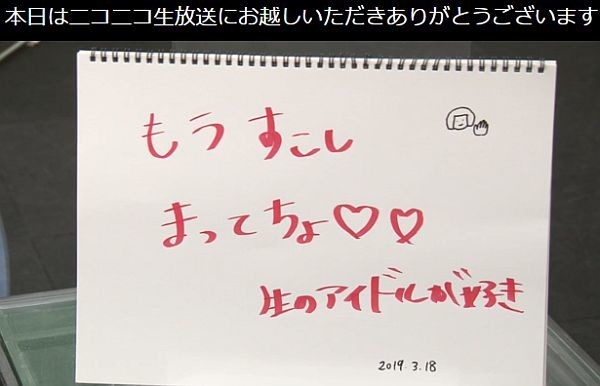 本日はニコニコ生放送にお越しいただきありがとうございます
もうすこし
まってちょ♡♡
生のアイドルが好き
2019.3.18